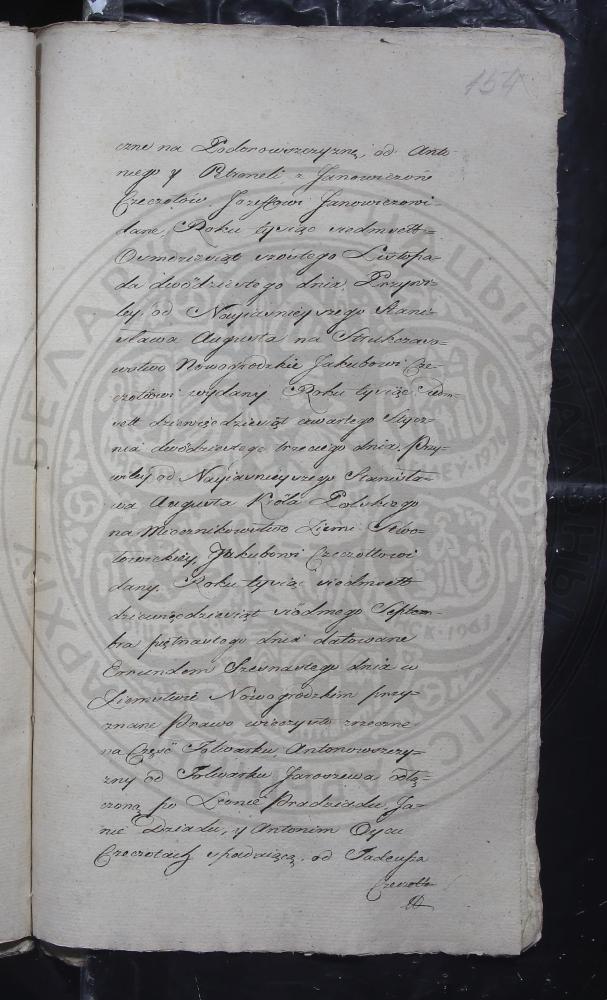 154
czne na Podorowszczyznę, od Anto-
niego y Petroneli z Janowiczow
Czeczotów Jozefowi Janowiczowi
dane, Roku tysiąc siedmsett-
Osmdziesiąt szóstego Listopa-
da dwódziestego dnia, Przywi-
ley od Nayiaśnieyszego Stani-
sława Augusta na Strukczaso-
wostwo Nowogrodzkie Jakubowi Cze-
czotowi wydany. Roku tysiąc siedm-
sett dziewięcdziesiąt czwartego Stycz-
nia dwódziestego trzeciego dnia, Przy-
wiley od Nayiaśnieyszego Stanisła-
wa Augusta Króla Polskiego
na Miecznikowstwo Ziemi
Jakubowi Czeczottowi
dany. Roku tysiąc siedmsett
dziewięcdziesiąt siódmego Septem-
bra piętnastego dnia datowane
Eiusdem Szesnastego dnia w
Ziemstwie Nowogrodzkim przy-
znane Prawo wieczysto zrzeczne
na Część Folwarku Antonowszczy-
zny od Folwarku Jaroszewa odłą-
czoną, po Leonie Pradziadu, Ja-
nie Dziadu, y Antonim Oycu
Czeczotach spadaiącą, od Tadeusza
Czeczotta